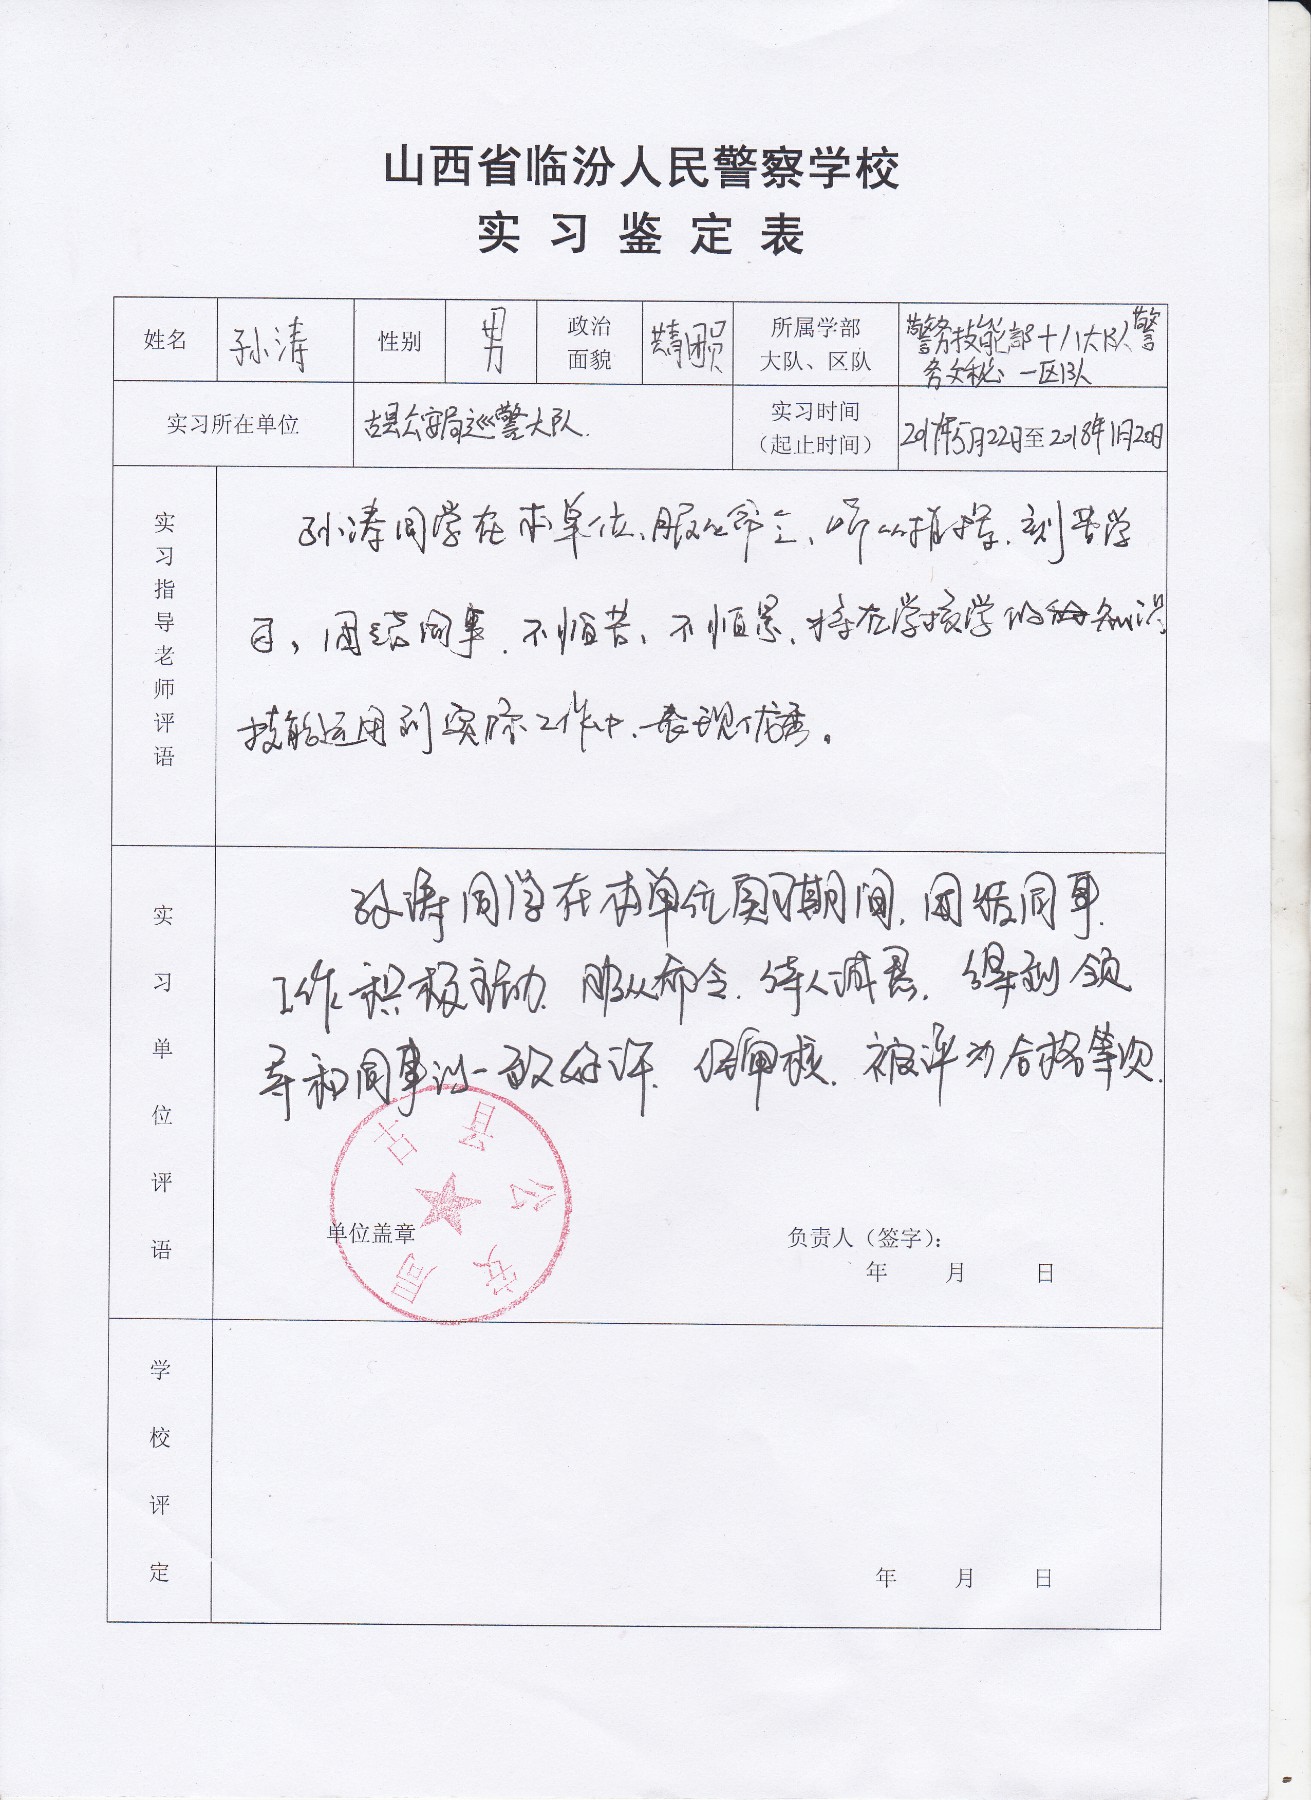 山西省临汾人民警察学校
实习鉴定表
姓名 孙涛 性别 男 政治面貌 共青团员 所属学部大队、区队 警务技能部十八大队警务文秘一区队
实习所在单位 古县公安局巡警大队. 实习时间（起止时间） 2017年5月22日至2018年1月20日
实习指导老师评语
孙涛同学在本单位、服从命令、听从指挥、刻苦学
习，团结同事、不怕苦、不怕累、将在学校学的知识
技能运用到实际工作中、表现优秀。
实习单位评语
孙涛同学在本单位实习期间，团结同事，
工作积极主动，服从命令，待人诚恳，得到领
导和同事以一致好评，经审核，被评为合格等次.
古县公安局
单位盖章
负责人（签字）：
年 月 日
学校评定
年 月 日